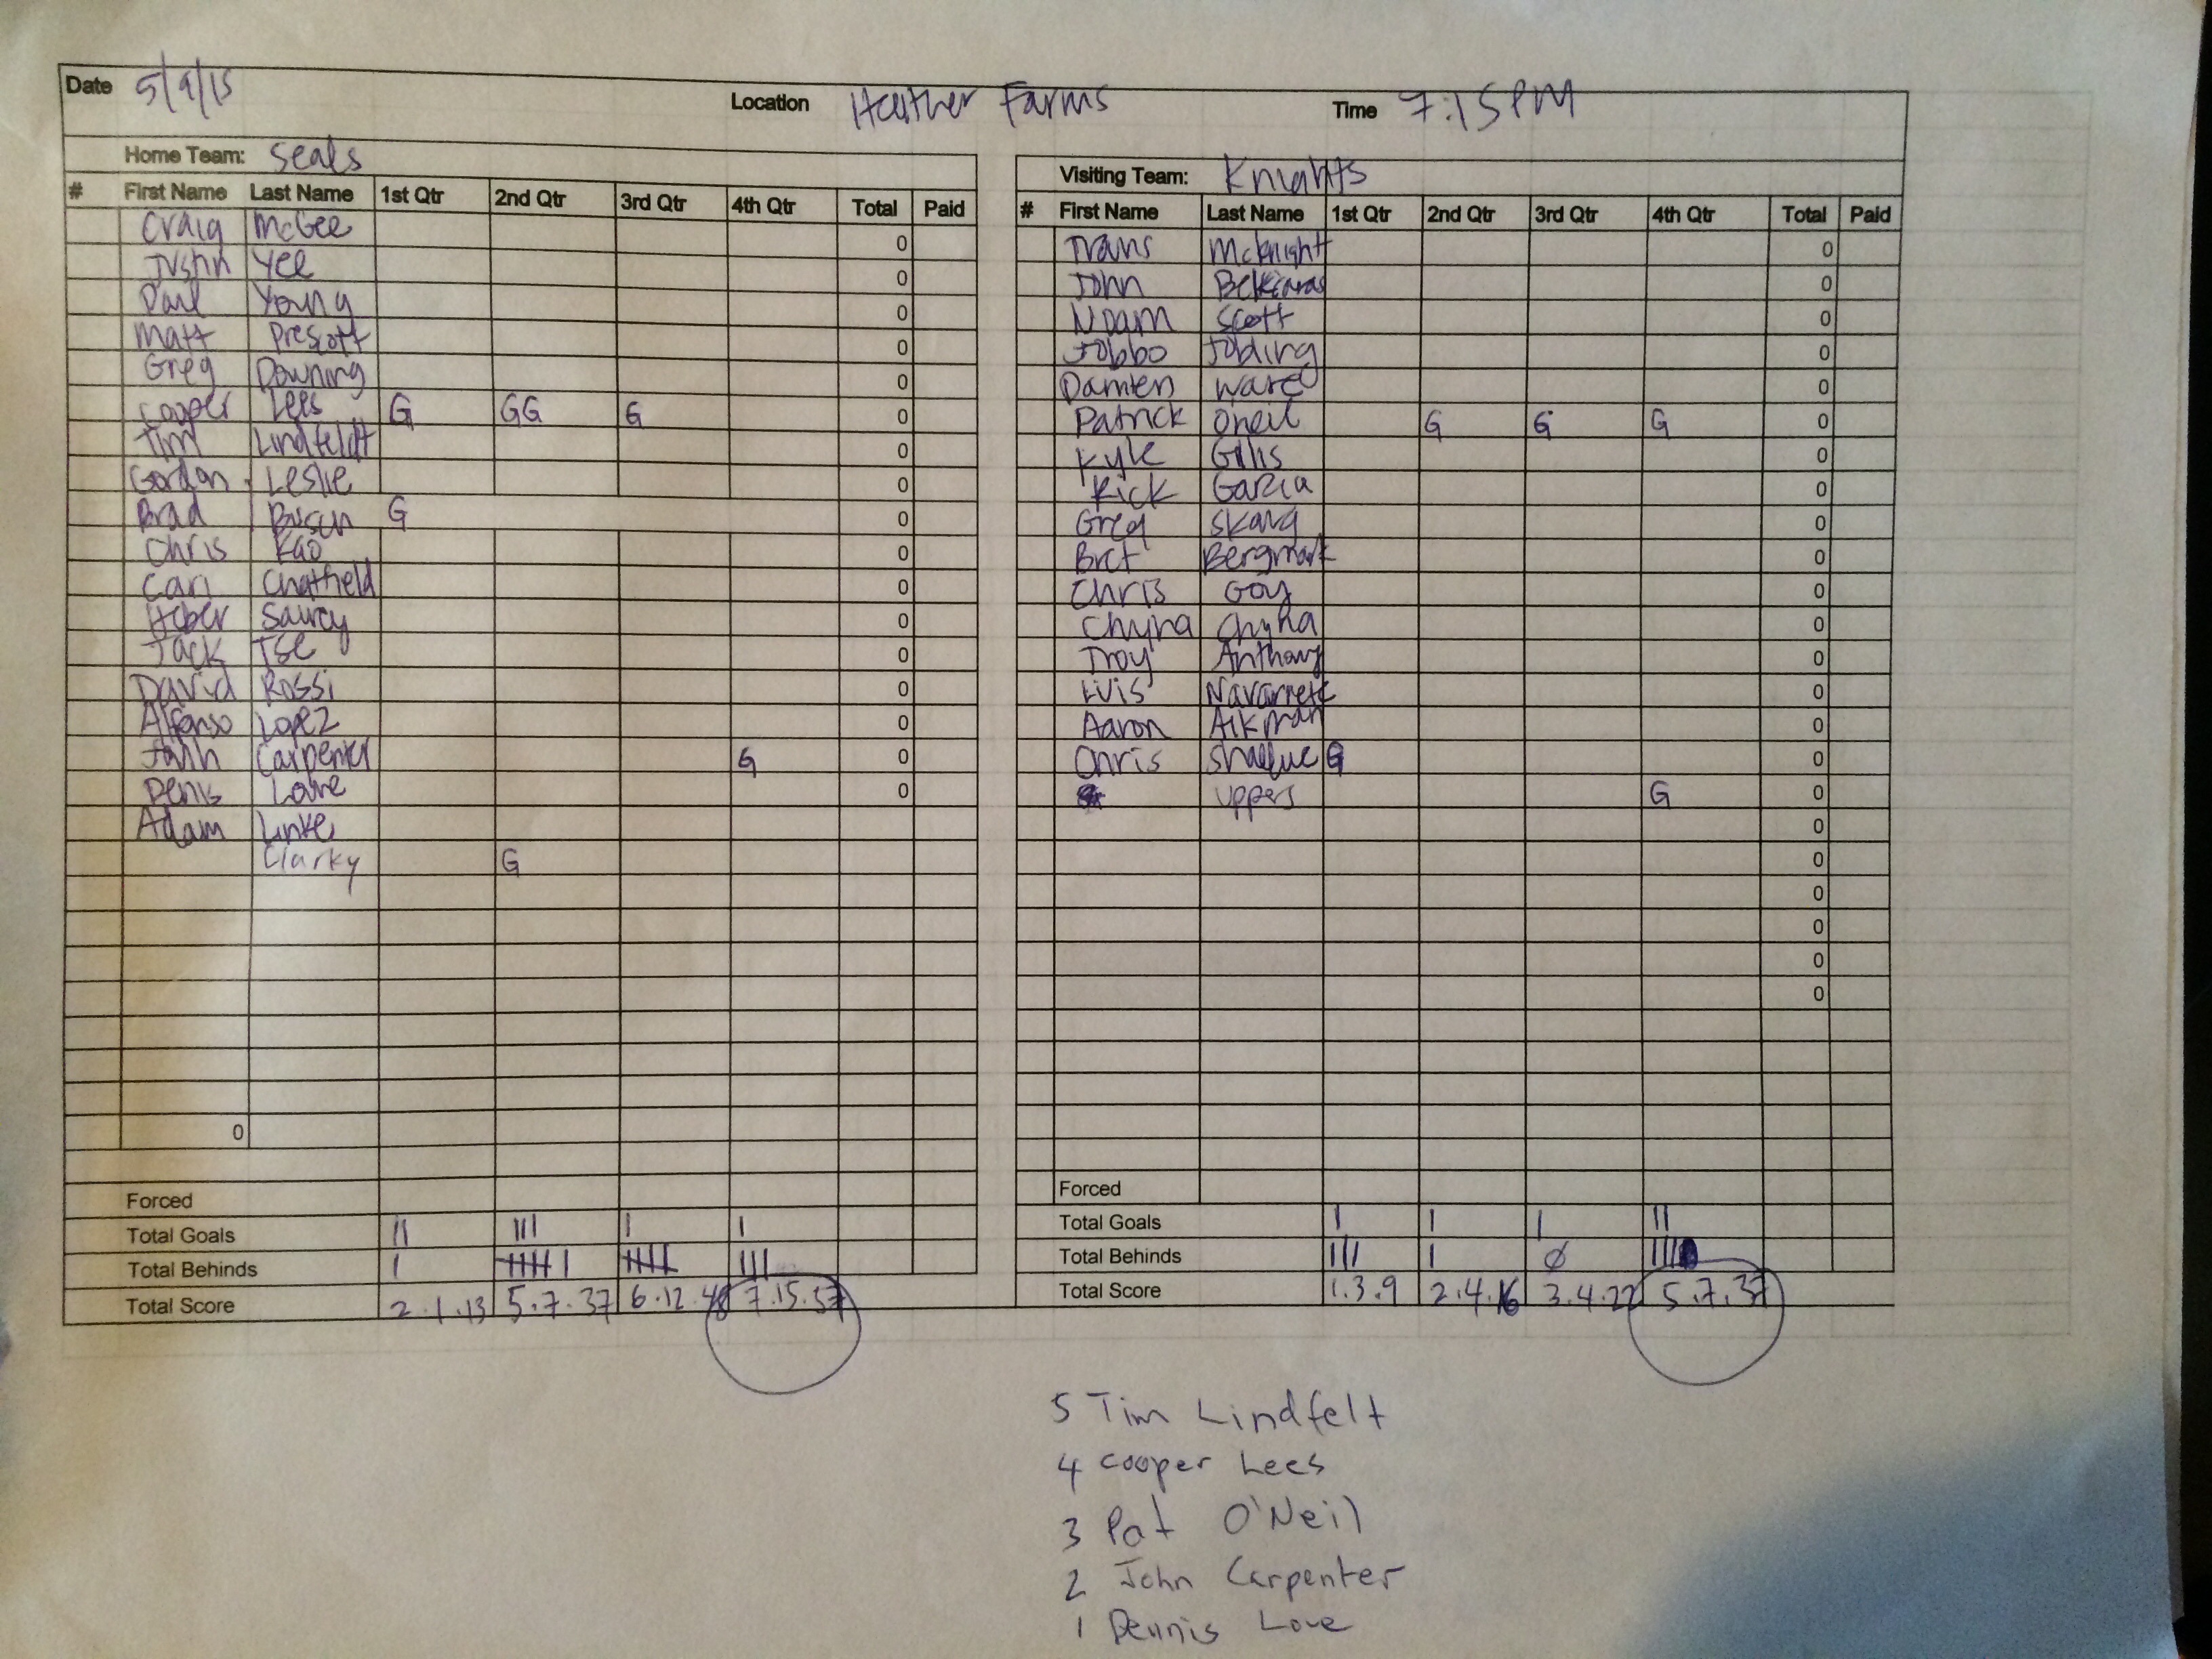 Date 5/9/15 Location Heather Farms Time 7:15PM
Home Team: Seals
# First Name Last Name 1st Qtr 2nd Qtr 3rd Qtr 4th Qtr Total Paid
Craig McGee 0
Justin Yee 0
Paul Young 0
Matt Prescott 0
Greg Downing 0
Cooper Lees G GG G 0
Tim Lindfeldt 0
Gordon Leslie 0
Brad G 0
Chris Kao 0
Carl Chatfield 0
Heber Saurey 0
Jack Tse 0
David Rossi 0
Alfonso Lopez 0
John Carpenter G 0
Denis Love 0
Adam
Clarky G
0
Forced
Total Goals || ||| | |
Total Behinds | |||| | |||| |||
Total Score 2.1.13 5.7.37 6.12.48 7.15.57
Visiting Team: Knights
# First Name Last Name 1st Qtr 2nd Qtr 3rd Qtr 4th Qtr Total Paid
Travis McKnight 0
John 0
Noam Scott 0
Jobbo Jobling 0
Damien Ware 0
Patrick Oneil G G G 0
Kyle Gillis 0
Rick Garcia 0
Greg Skarg 0
Bret Bergmark 0
Chris Goy 0
Chyna Chyna 0
Troy Anthony 0
Luis Navarrete 0
Aaron Aikman 0
Chris Shallue G 0
Uppers G 0
0
0
0
0
0
0
Forced
Total Goals | | | ||
Total Behinds ||| | Ø |||
Total Score 1.3.9 2.4.16 3.4.22 5.7.37
5 Tim Lindfelt
4 Cooper Lees
3 Pat O'Neil
2 John Carpenter
1 Dennis Love